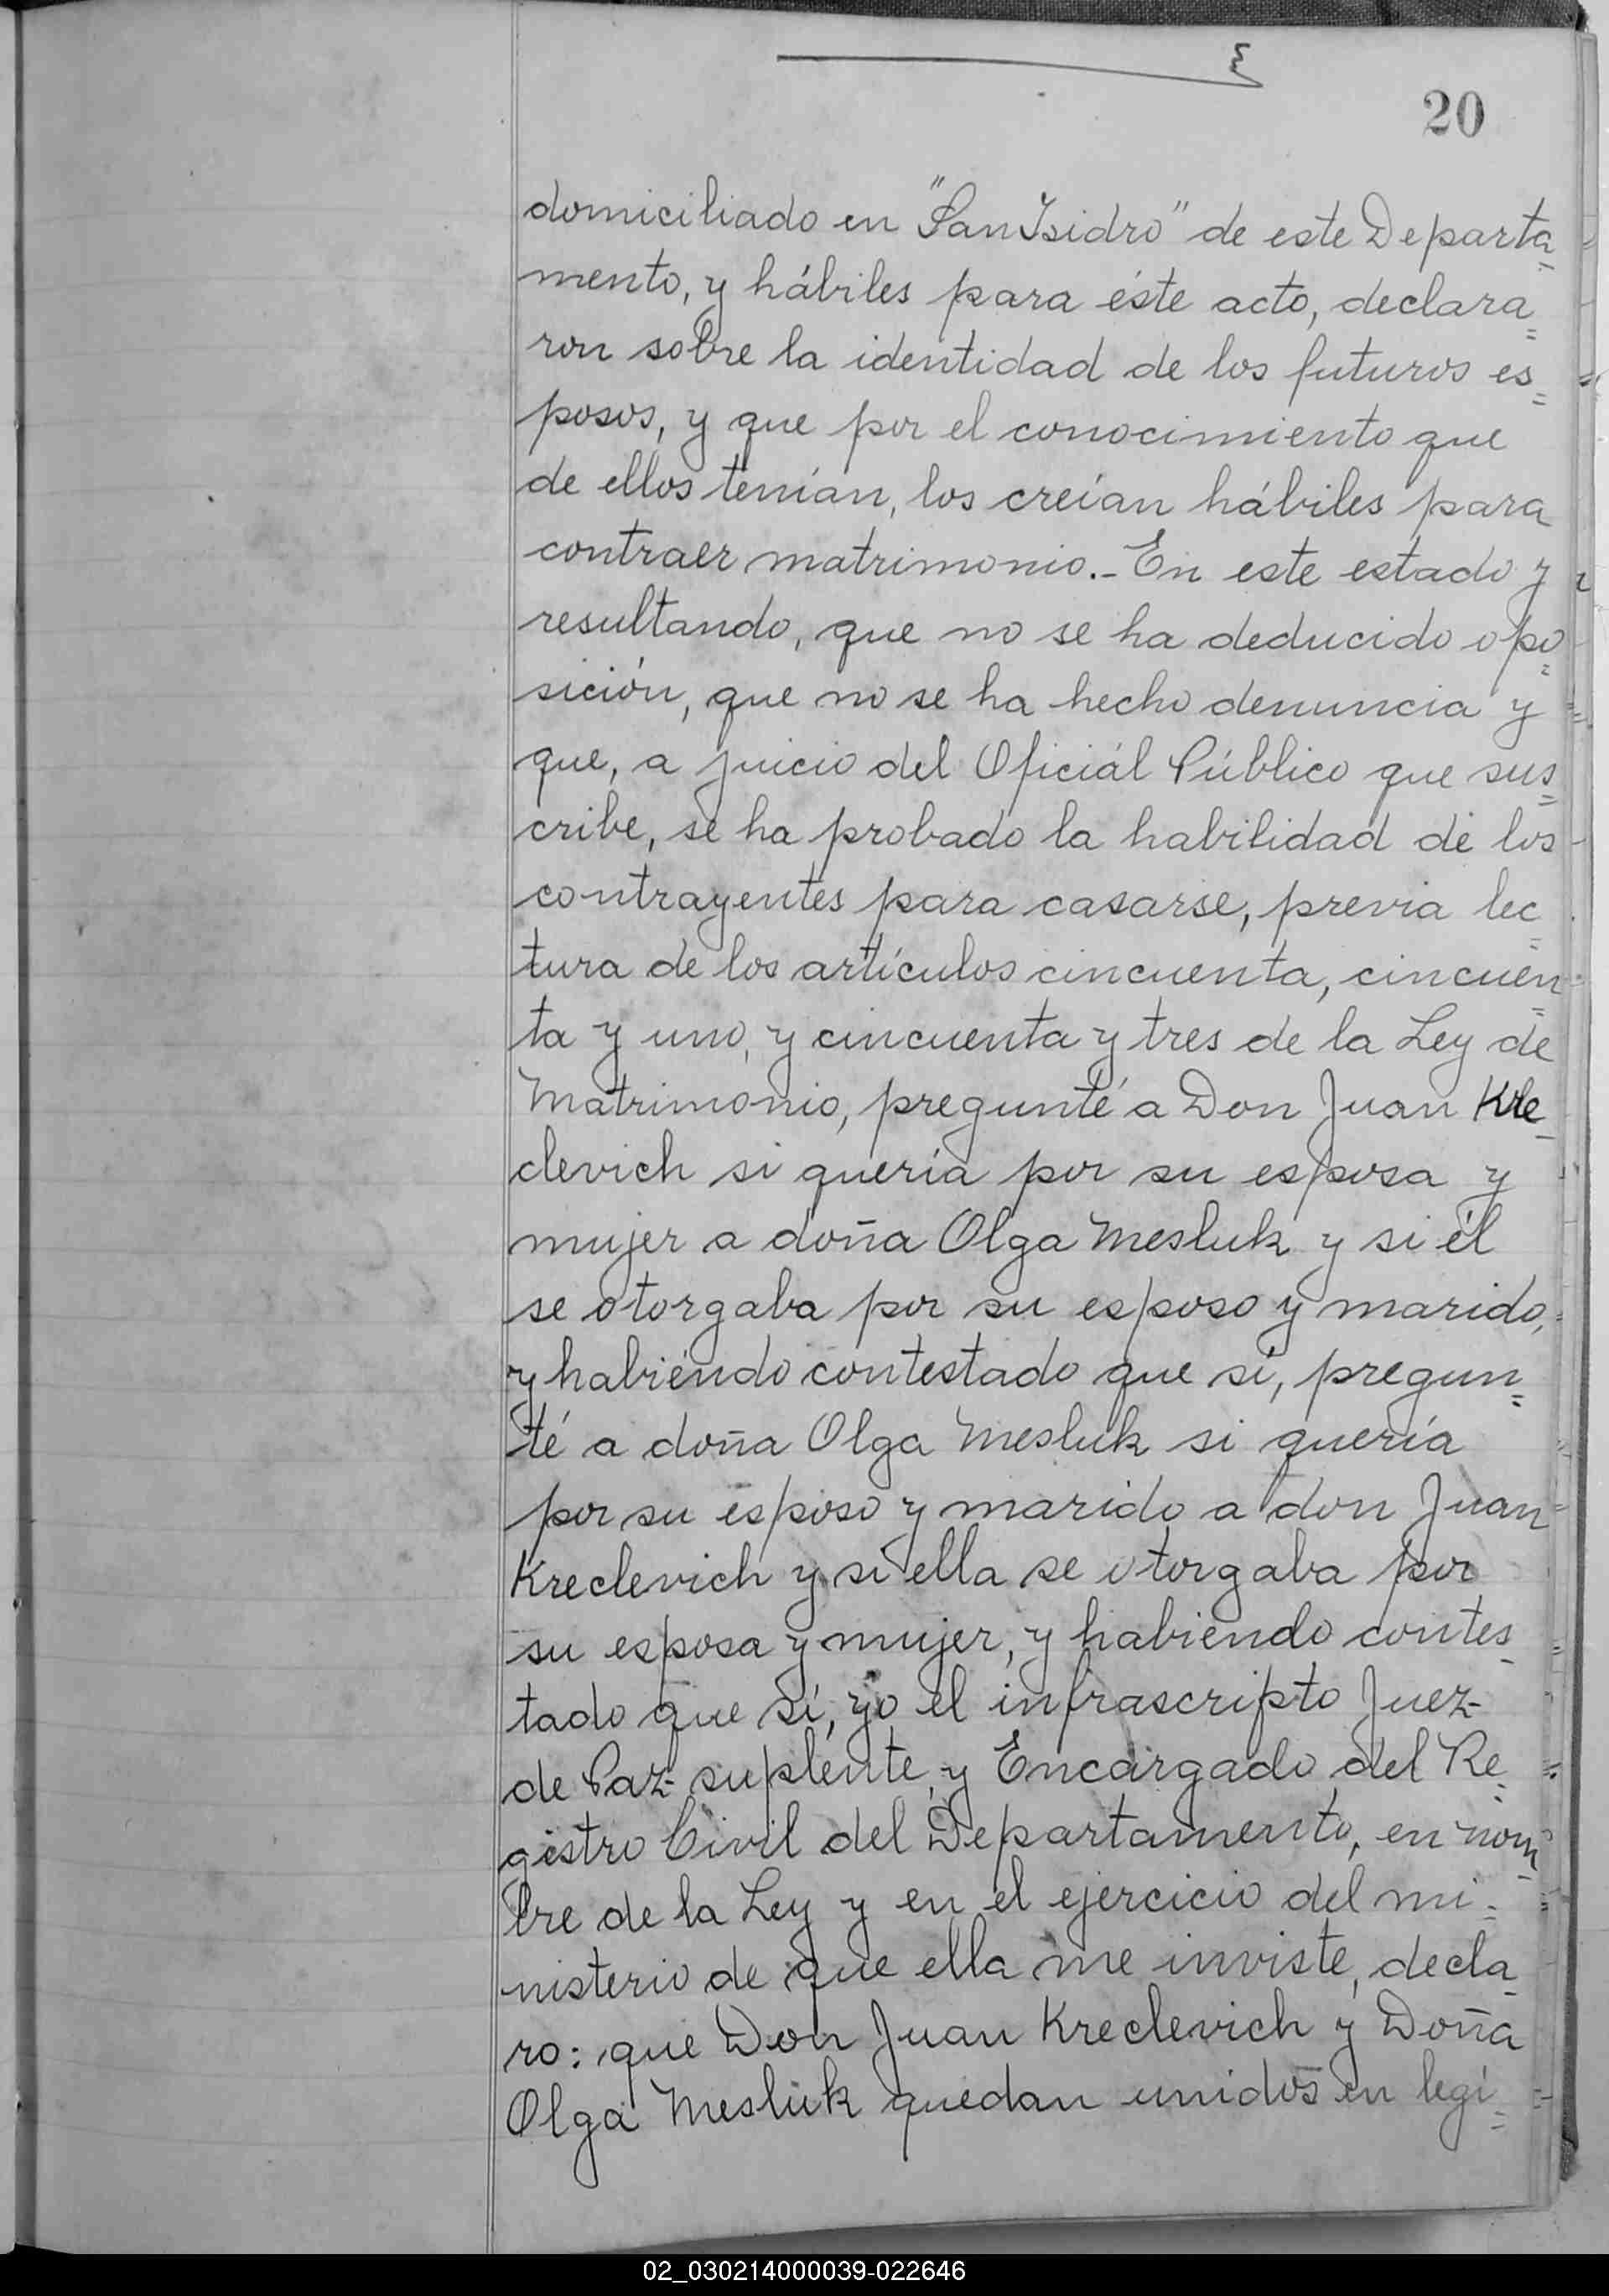 20
domiciliado en "San Isidro" de este Departa-
mento, y hábiles para éste acto, declara=
ron sobre la identidad de los futuros es=
posos, y que por el conocimiento que
de ellos tenían, los creían hábiles para
contraer matrimonio.- En este estado y
resultando, que no se ha deducido opo=
sición, que no se ha hecho denuncia y
que, a juicio del Oficiál Público que sus=
cribe, se ha probado la habilidad de los
contrayentes para casarse, previa lec=
tura de los artículos cincuenta, cincuen=
ta y uno, y cincuenta y tres de la Ley de
Matrimonio, pregunté a Don Juan Kre-
clevich si quería por su esposa y
mujer a doña Olga Mesluk y si él
se otorgaba por su esposo y marido,
y habiendo contestado que sí, pregun=
té a doña Olga Mesluk si quería
por su esposo y marido a don Juan
Kreclevich y si ella se otorgaba por
su esposa y mujer, y habiendo contes-
tado que sí, yo el infrascripto Juez
de Paz suplente, y Encargado del Re-
gistro Civil del Departamento, en nom-
bre de la Ley y en el ejercicio del mi=
nisterio de que ella me inviste, decla-
ro: que Don Juan Kreclevich y Doña
Olga Mesluk quedan unidos en legí=
02_030214000039-022646